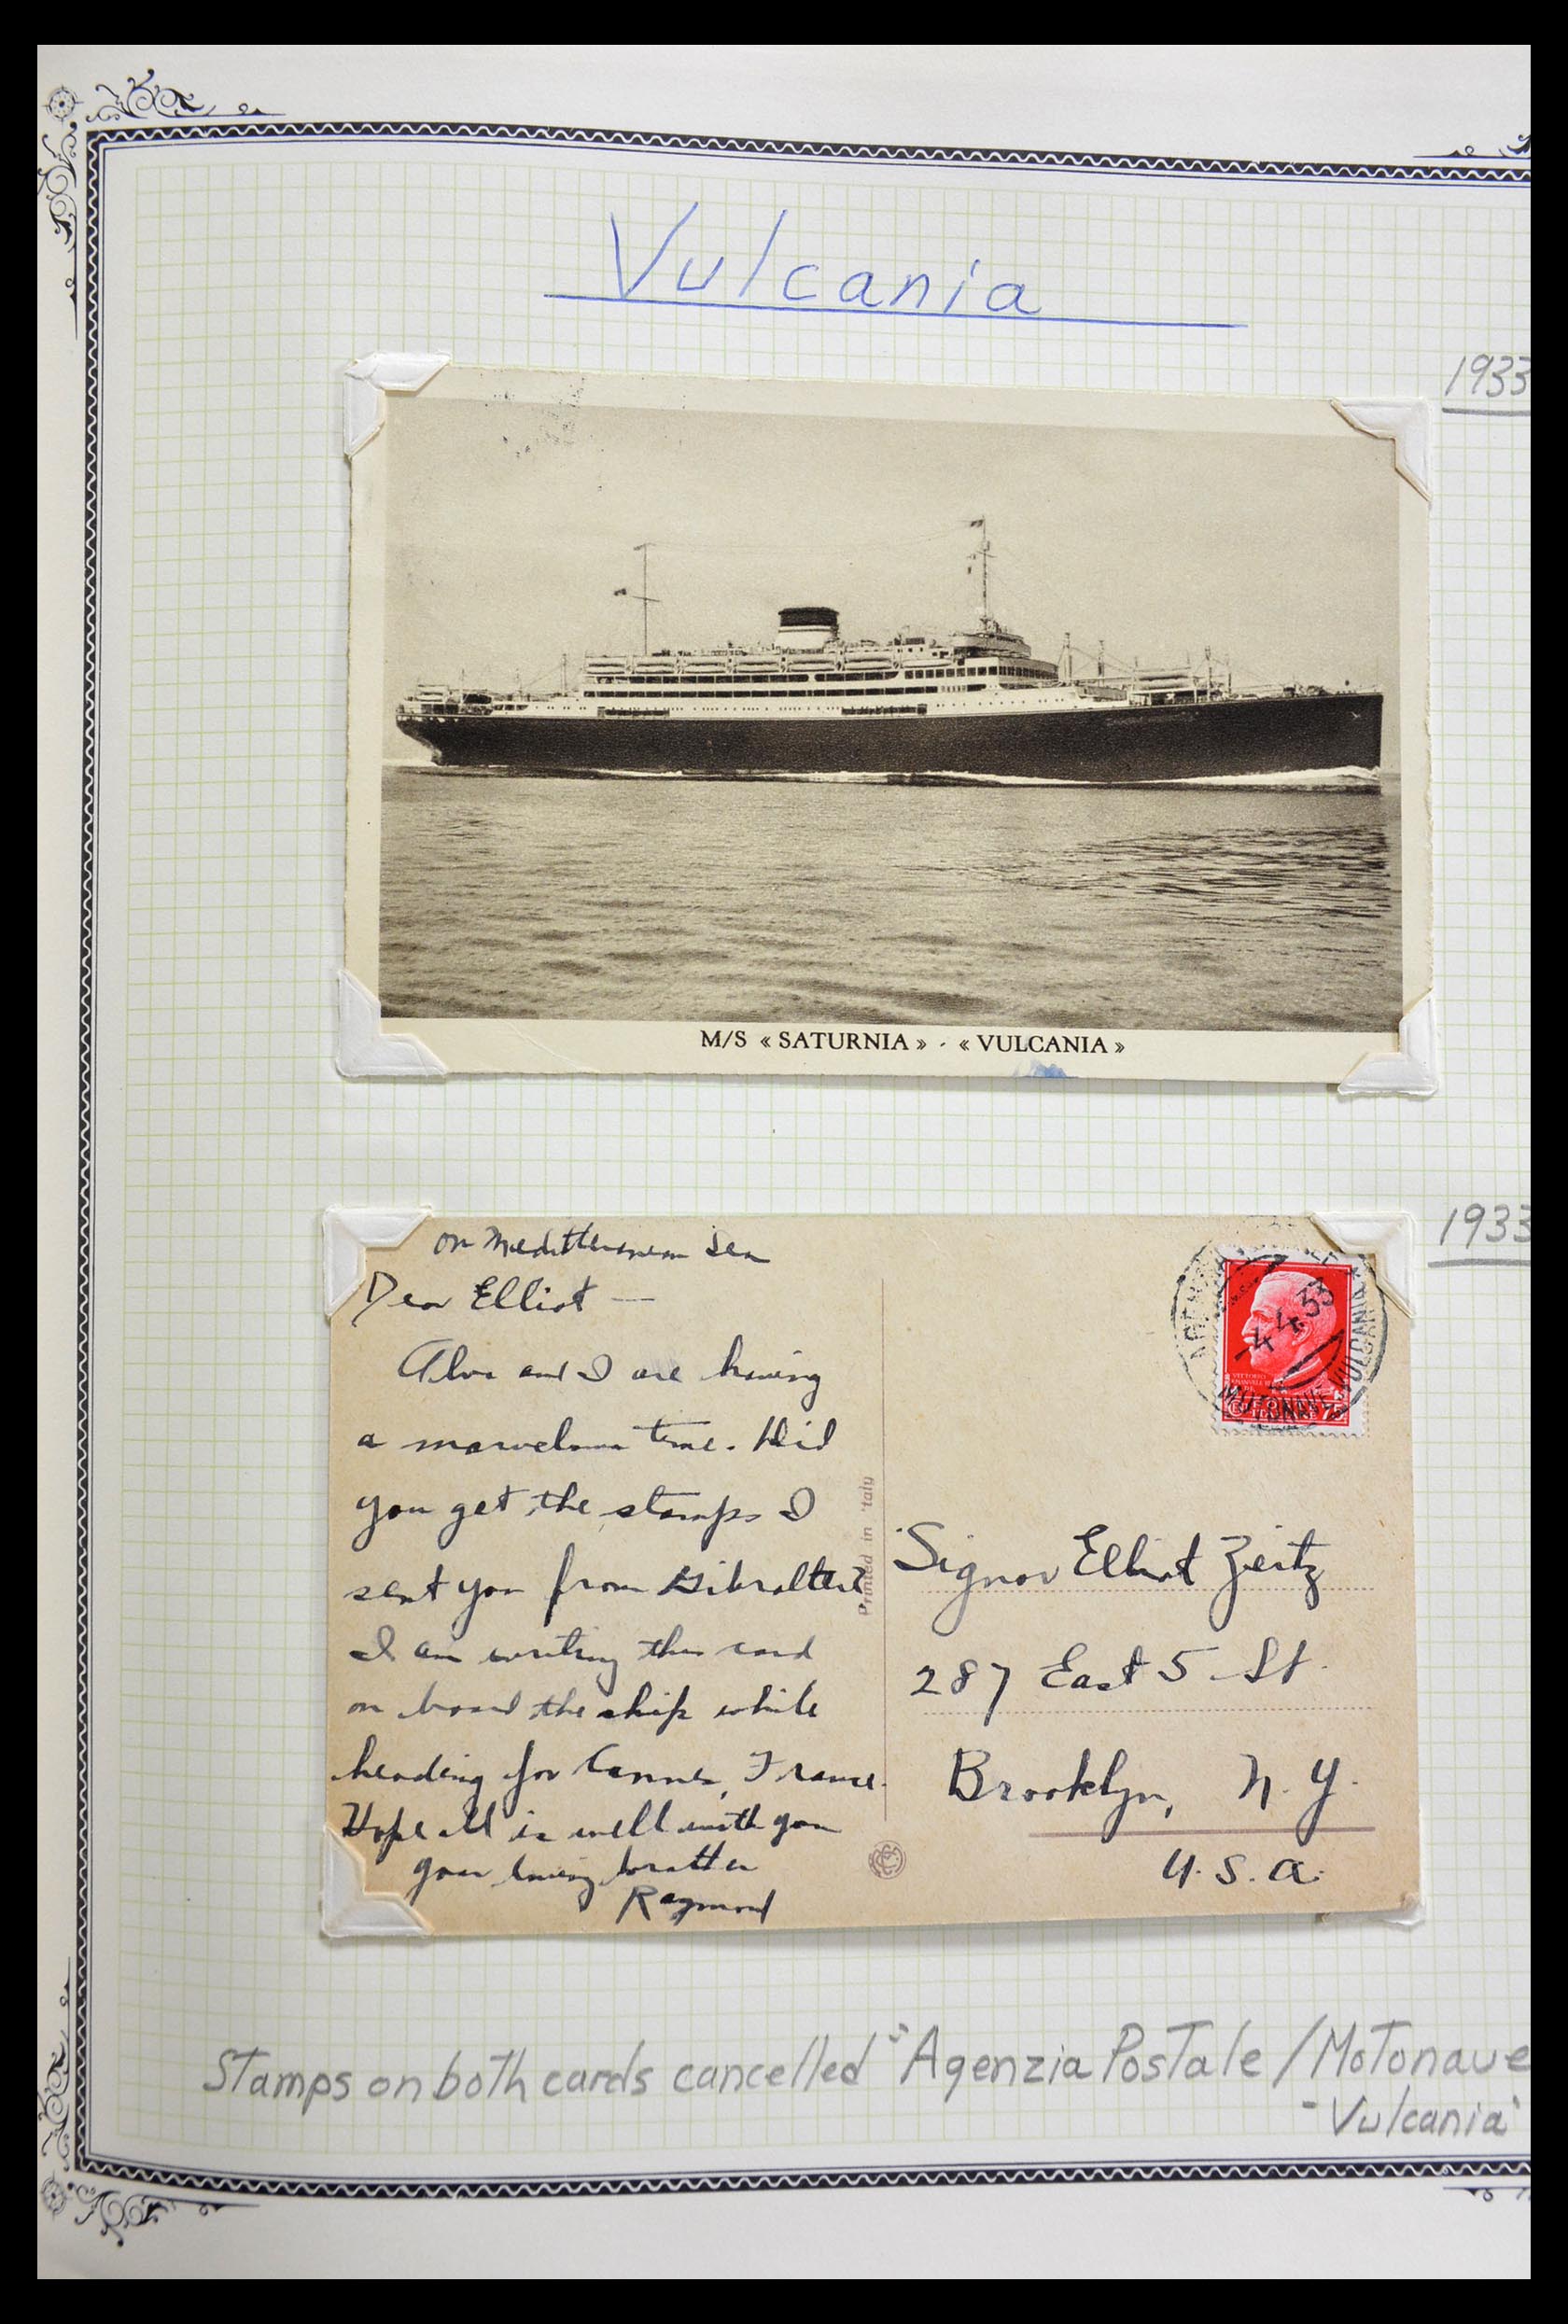 Vulcania
1933
M/S « SATURNIA » - « VULCANIA »
1933
on Mediterranean Sea
Dear Elliot —
Alva and I are having
a marvelous time. Did
you get the stamps I
sent you from Gibralter?
I am writing this card
on board the ship while
heading for Cannes, France.
Hope all is well with you
your loving brother
Raymond
Printed in Italy
4.4.33
MOTONAVE VULCANIA
75
Signor Elliot Zeitz
287 East 5 St.
Brooklyn, N. Y.
U. S. A.
Stamps on both cards cancelled "Agenzia Postale / Motonave
- Vulcania"